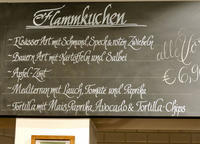 Flammkuchen
- Elsässer Art mit Schmand, Speck & roten Zwiebeln
- Bauern Art mit Kartoffeln und Salbei
- Apfel-Zimt
- Mediterran mit Lauch, Tomate und Paprika
- Tortilla mit Mais, Paprika, Avocado & Tortilla-Chips
€ 6,9